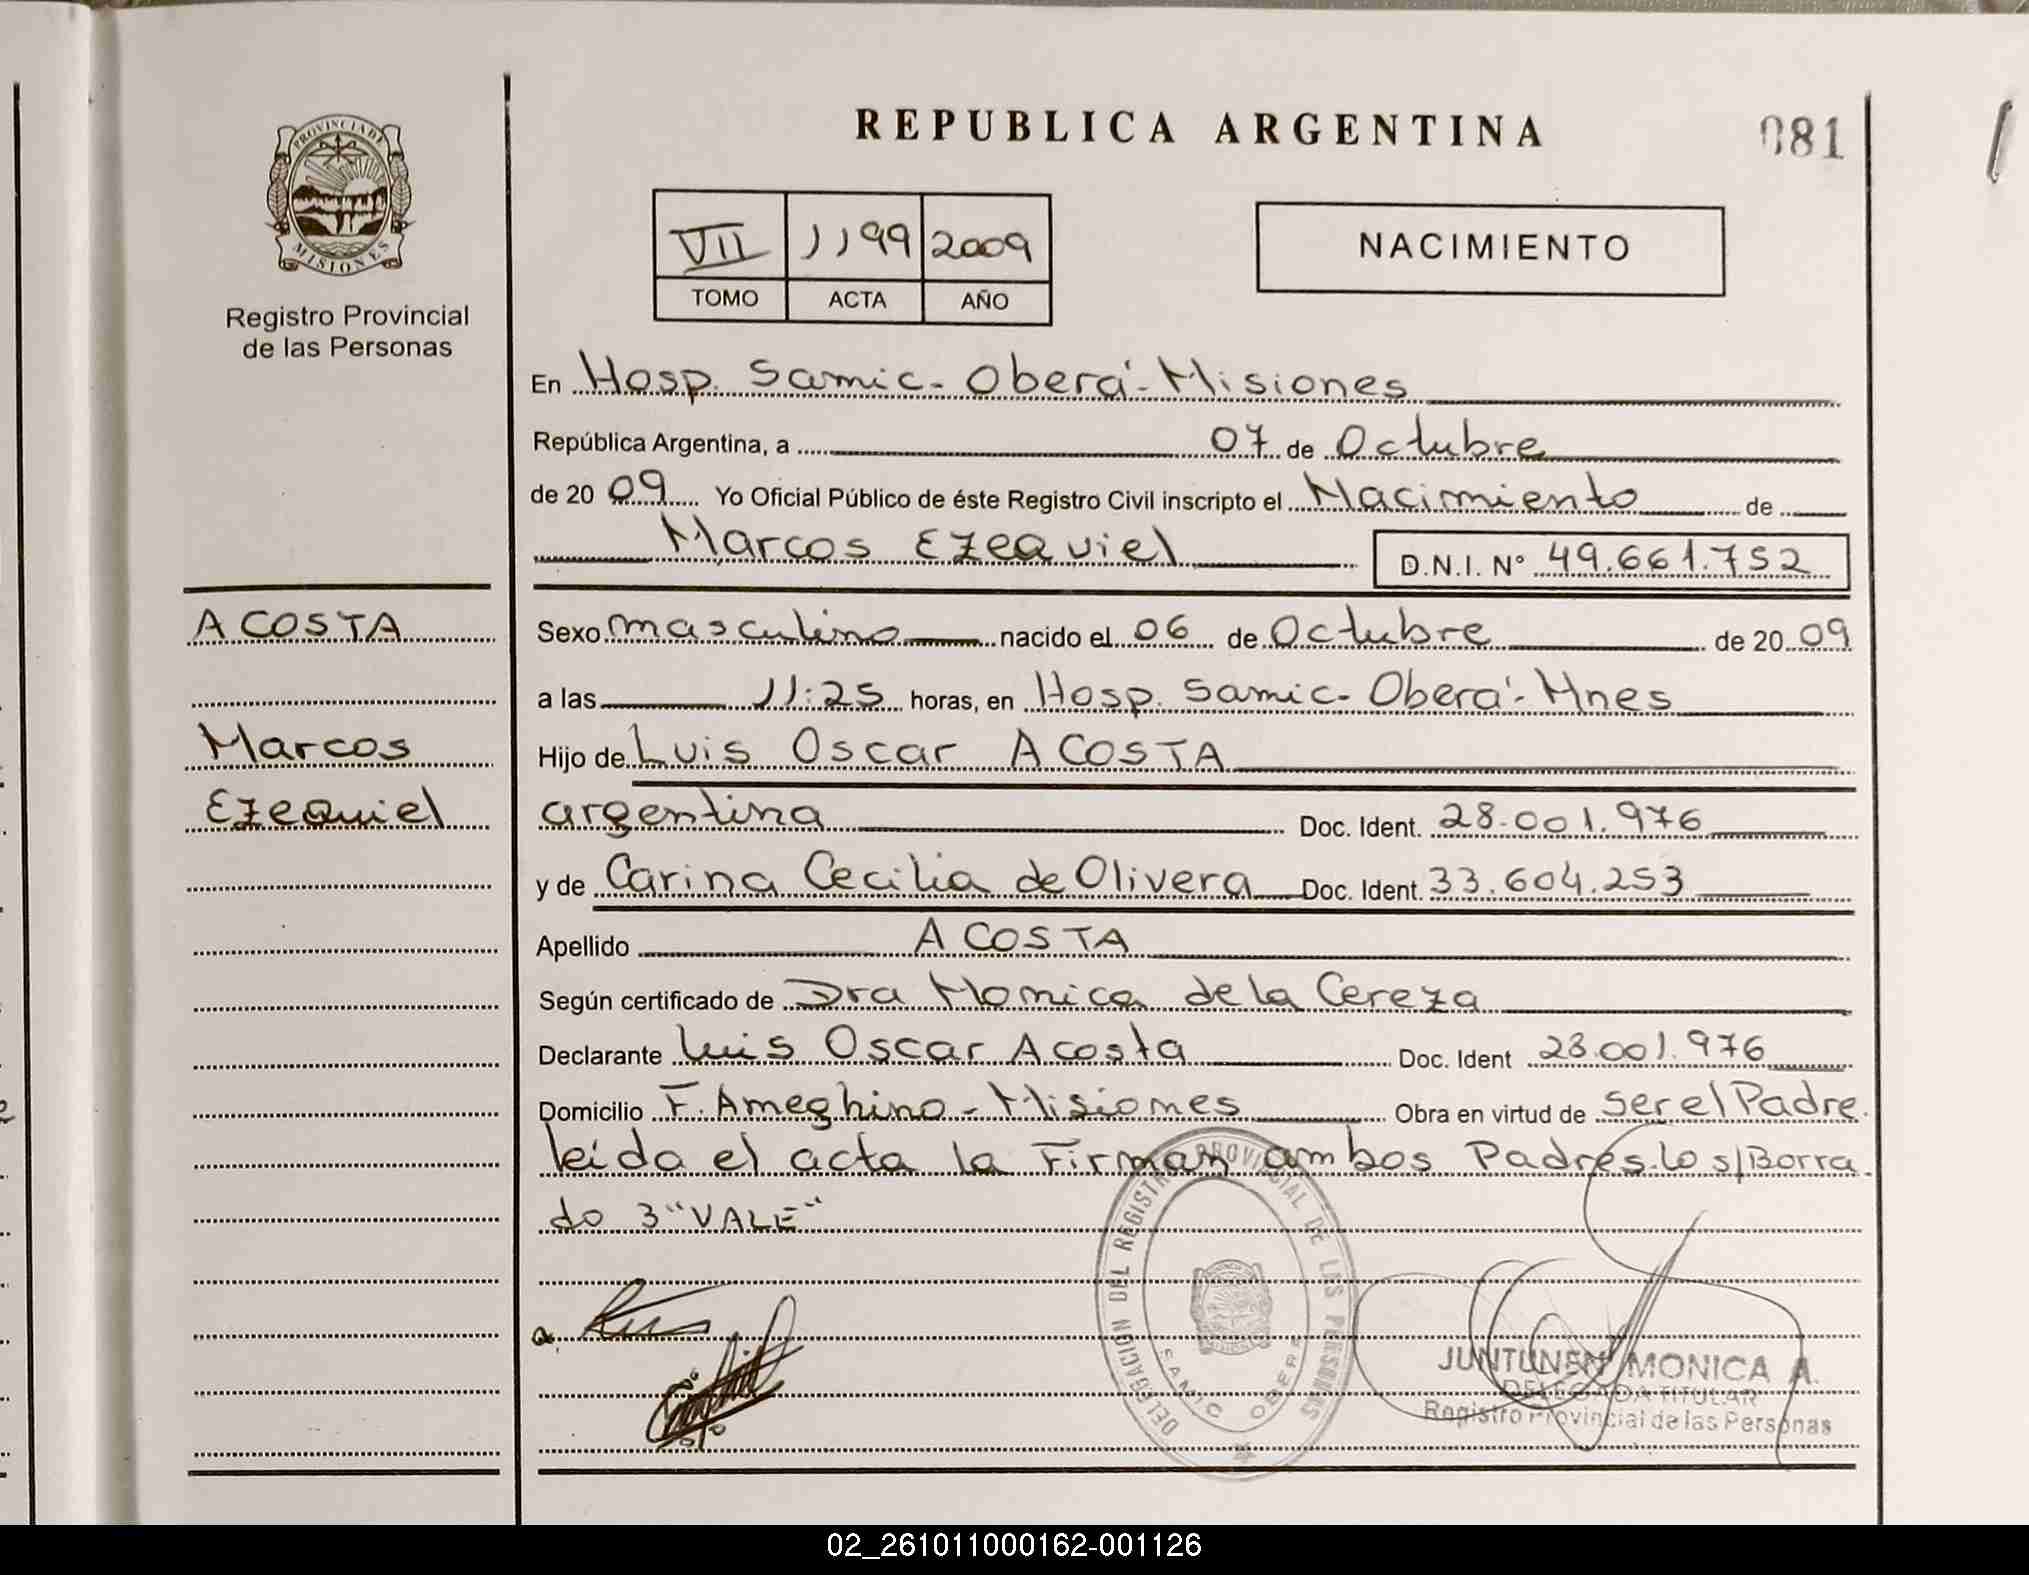 REPUBLICA ARGENTINA
081
PROVINCIA DE
MISIONES
Registro Provincial
de las Personas
VII 1199 2009
TOMO ACTA AÑO
NACIMIENTO
En Hosp. Samic - Oberá - Misiones
República Argentina, a 07 de Octubre
de 20 09 Yo Oficial Público de éste Registro Civil inscripto el Nacimiento de
Marcos Ezequiel D.N.I. N° 49.661.752
ACOSTA
Marcos
Ezequiel
Sexo masculino nacido el 06 de Octubre de 20 09
a las 11:25 horas, en Hosp. Samic - Oberá - Mnes
Hijo de Luis Oscar ACOSTA
argentina Doc. Ident. 28.001.976
y de Carina Cecilia de Olivera Doc. Ident. 33.604.253
Apellido ACOSTA
Según certificado de Dra Monica de la Cereza
Declarante Luis Oscar Acosta Doc. Ident 28.001.976
Domicilio F. Ameghino - Misiones Obra en virtud de ser el Padre.
leida el acta la Firman ambos Padres. Lo s/Borra
do 3 "VALE"
DELEGACION DEL REGISTRO PROVINCIAL DE LAS PERSONAS
SAMIC OBERA
JUNTUNEN MONICA A.
DELEGADA TITULAR
Registro Provincial de las Personas
02_261011000162-001126